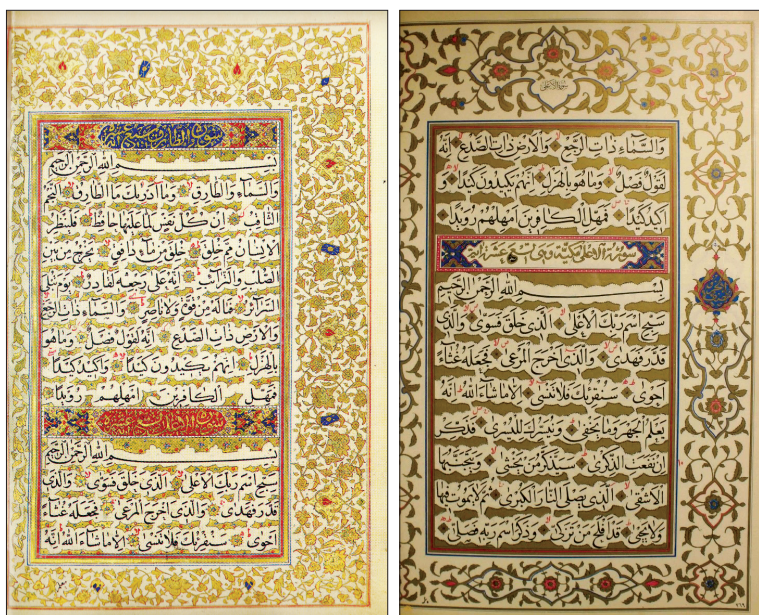 سورة والطارق
بِسْمِ اللهِ الرَّحْمٰنِ الرَّحِيمِ
وَالسَّمَآءِ وَالطَّارِقِ وَمَآ اَدْرٰيكَ مَا الطَّارِقُ اَلنَّجْمُ
الثَّاقِبُ اِنْ كُلُّ نَفْسٍ لَمَّا عَلَيْهَا حَافِظٌ فَلْيَنْظُرِ
الْاِنْسَانُ مِمَّ خُلِقَ خُلِقَ مِنْ مَآءٍ دَافِقٍ يَخْرُجُ مِنْ بَيْنِ
الصُّلْبِ وَالتَّرَآئِبِ اِنَّهُ عَلٰى رَجْعِهِ لَقَادِرٌ يَوْمَ تُبْلَى
السَّرَآئِرُ فَمَا لَهُ مِنْ قُوَّةٍ وَلَا نَاصِرٍ وَالسَّمَآءِ ذَاتِ الرَّجْعِ
وَالْاَرْضِ ذَاتِ الصَّدْعِ اِنَّهُ لَقَوْلٌ فَصْلٌ وَمَا هُوَ
بِالْهَزْلِ اِنَّهُمْ يَكِيدُونَ كَيْدًا وَاَكِيدُ كَيْدًا
فَمَهِّلِ الْكَافِرِينَ اَمْهِلْهُمْ رُوَيْدًا
سورة الاعلى
بِسْمِ اللهِ الرَّحْمٰنِ الرَّحِيمِ
سَبِّحِ اسْمَ رَبِّكَ الْاَعْلَى اَلَّذِي خَلَقَ فَسَوّٰى وَالَّذِي
قَدَّرَ فَهَدٰى وَالَّذِي اَخْرَجَ الْمَرْعٰى فَجَعَلَهُ غُثَآءً
اَحْوٰى سَنُقْرِئُكَ فَلَا تَنْسٰى اِلَّا مَا شَآءَ اللهُ اِنَّهُ
سورة الاعلى
وَالسَّمَآءِ ذَاتِ الرَّجْعِ وَالْاَرْضِ ذَاتِ الصَّدْعِ اِنَّهُ
لَقَوْلٌ فَصْلٌ وَمَا هُوَ بِالْهَزْلِ اِنَّهُمْ يَكِيدُونَ كَيْدًا وَ
اَكِيدُ كَيْدًا فَمَهِّلِ الْكَافِرِينَ اَمْهِلْهُمْ رُوَيْدًا
سورة الاعلى مكية وهي تسع عشرة آية
بِسْمِ اللهِ الرَّحْمٰنِ الرَّحِيمِ
سَبِّحِ اسْمَ رَبِّكَ الْاَعْلَى اَلَّذِي خَلَقَ فَسَوّٰى وَالَّذِي
قَدَّرَ فَهَدٰى وَالَّذِي اَخْرَجَ الْمَرْعٰى فَجَعَلَهُ غُثَآءً
اَحْوٰى سَنُقْرِئُكَ فَلَا تَنْسٰى اِلَّا مَا شَآءَ اللهُ اِنَّهُ
يَعْلَمُ الْجَهْرَ وَمَا يَخْفٰى وَنُيَسِّرُكَ لِلْيُسْرٰى فَذَكِّرْ
اِنْ نَفَعَتِ الذِّكْرٰى سَيَذَّكَّرُ مَنْ يَخْشٰى وَيَتَجَنَّبُهَا
الْاَشْقٰى اَلَّذِي يَصْلَى النَّارَ الْكُبْرٰى ثُمَّ لَا يَمُوتُ فِيهَا
وَلَا يَحْيٰى قَدْ اَفْلَحَ مَنْ تَزَكّٰى وَذَكَرَ اسْمَ رَبِّهِ فَصَلّٰى